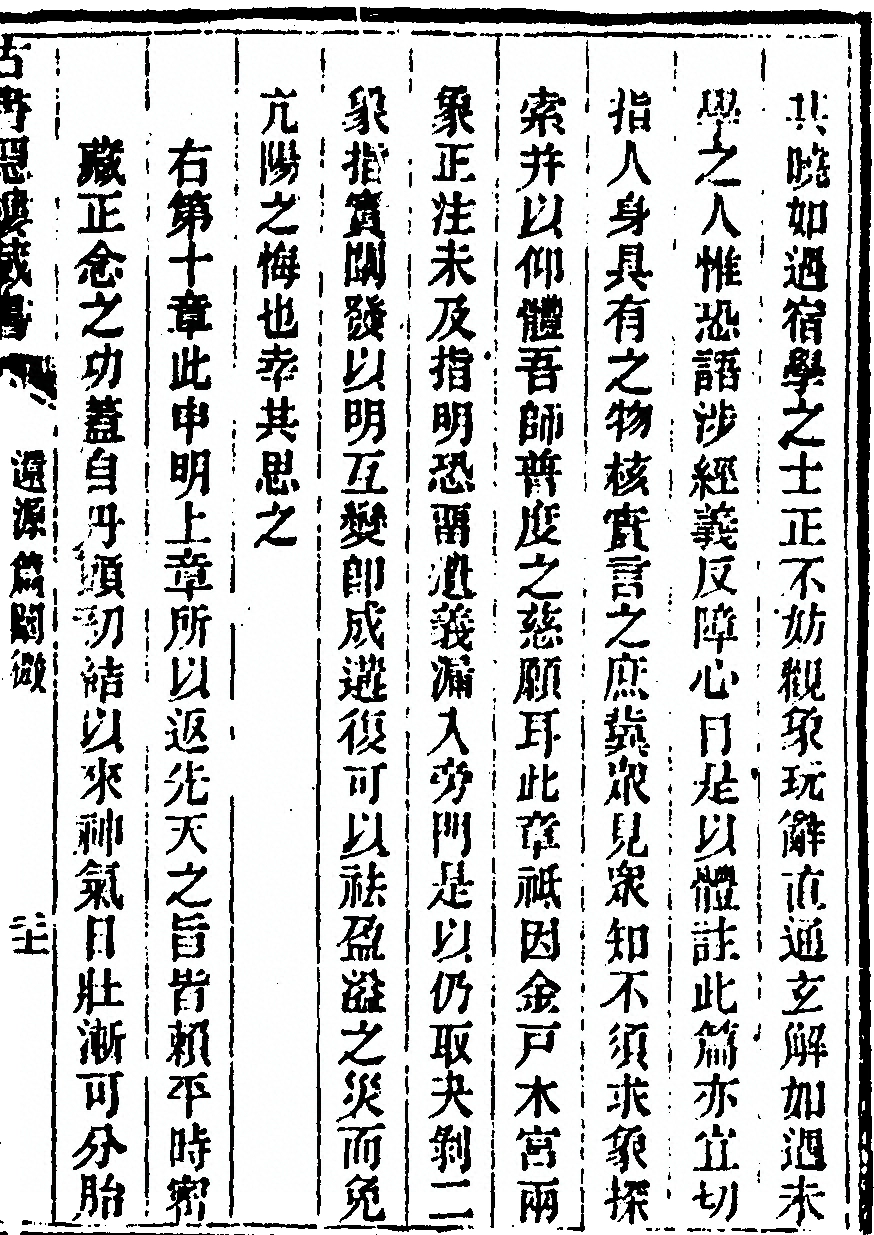 共曉如遇宿學之士正不妨觀象玩辭直通玄解如遇未
學之人惟恐語涉經義反障心目是以體註此篇亦宜切
指人身具有之物核實言之庶冀眾見眾知不須求象探
索并以仰體吾師普度之慈願耳此章祗因金戶木宮兩
象正注未及指明恐習滋義漏入旁門是以仍取夬剝二
象指實闡發以明互變即成遯復可以祛盈溢之災而免
亢陽之悔也幸共思之
右第十章此申明上章所以返先天之旨皆賴平時密
藏正念之功蓋自丹頭初結以來神氣日壯漸可分胎
古書隱樓藏書
還源篇闡微
二十